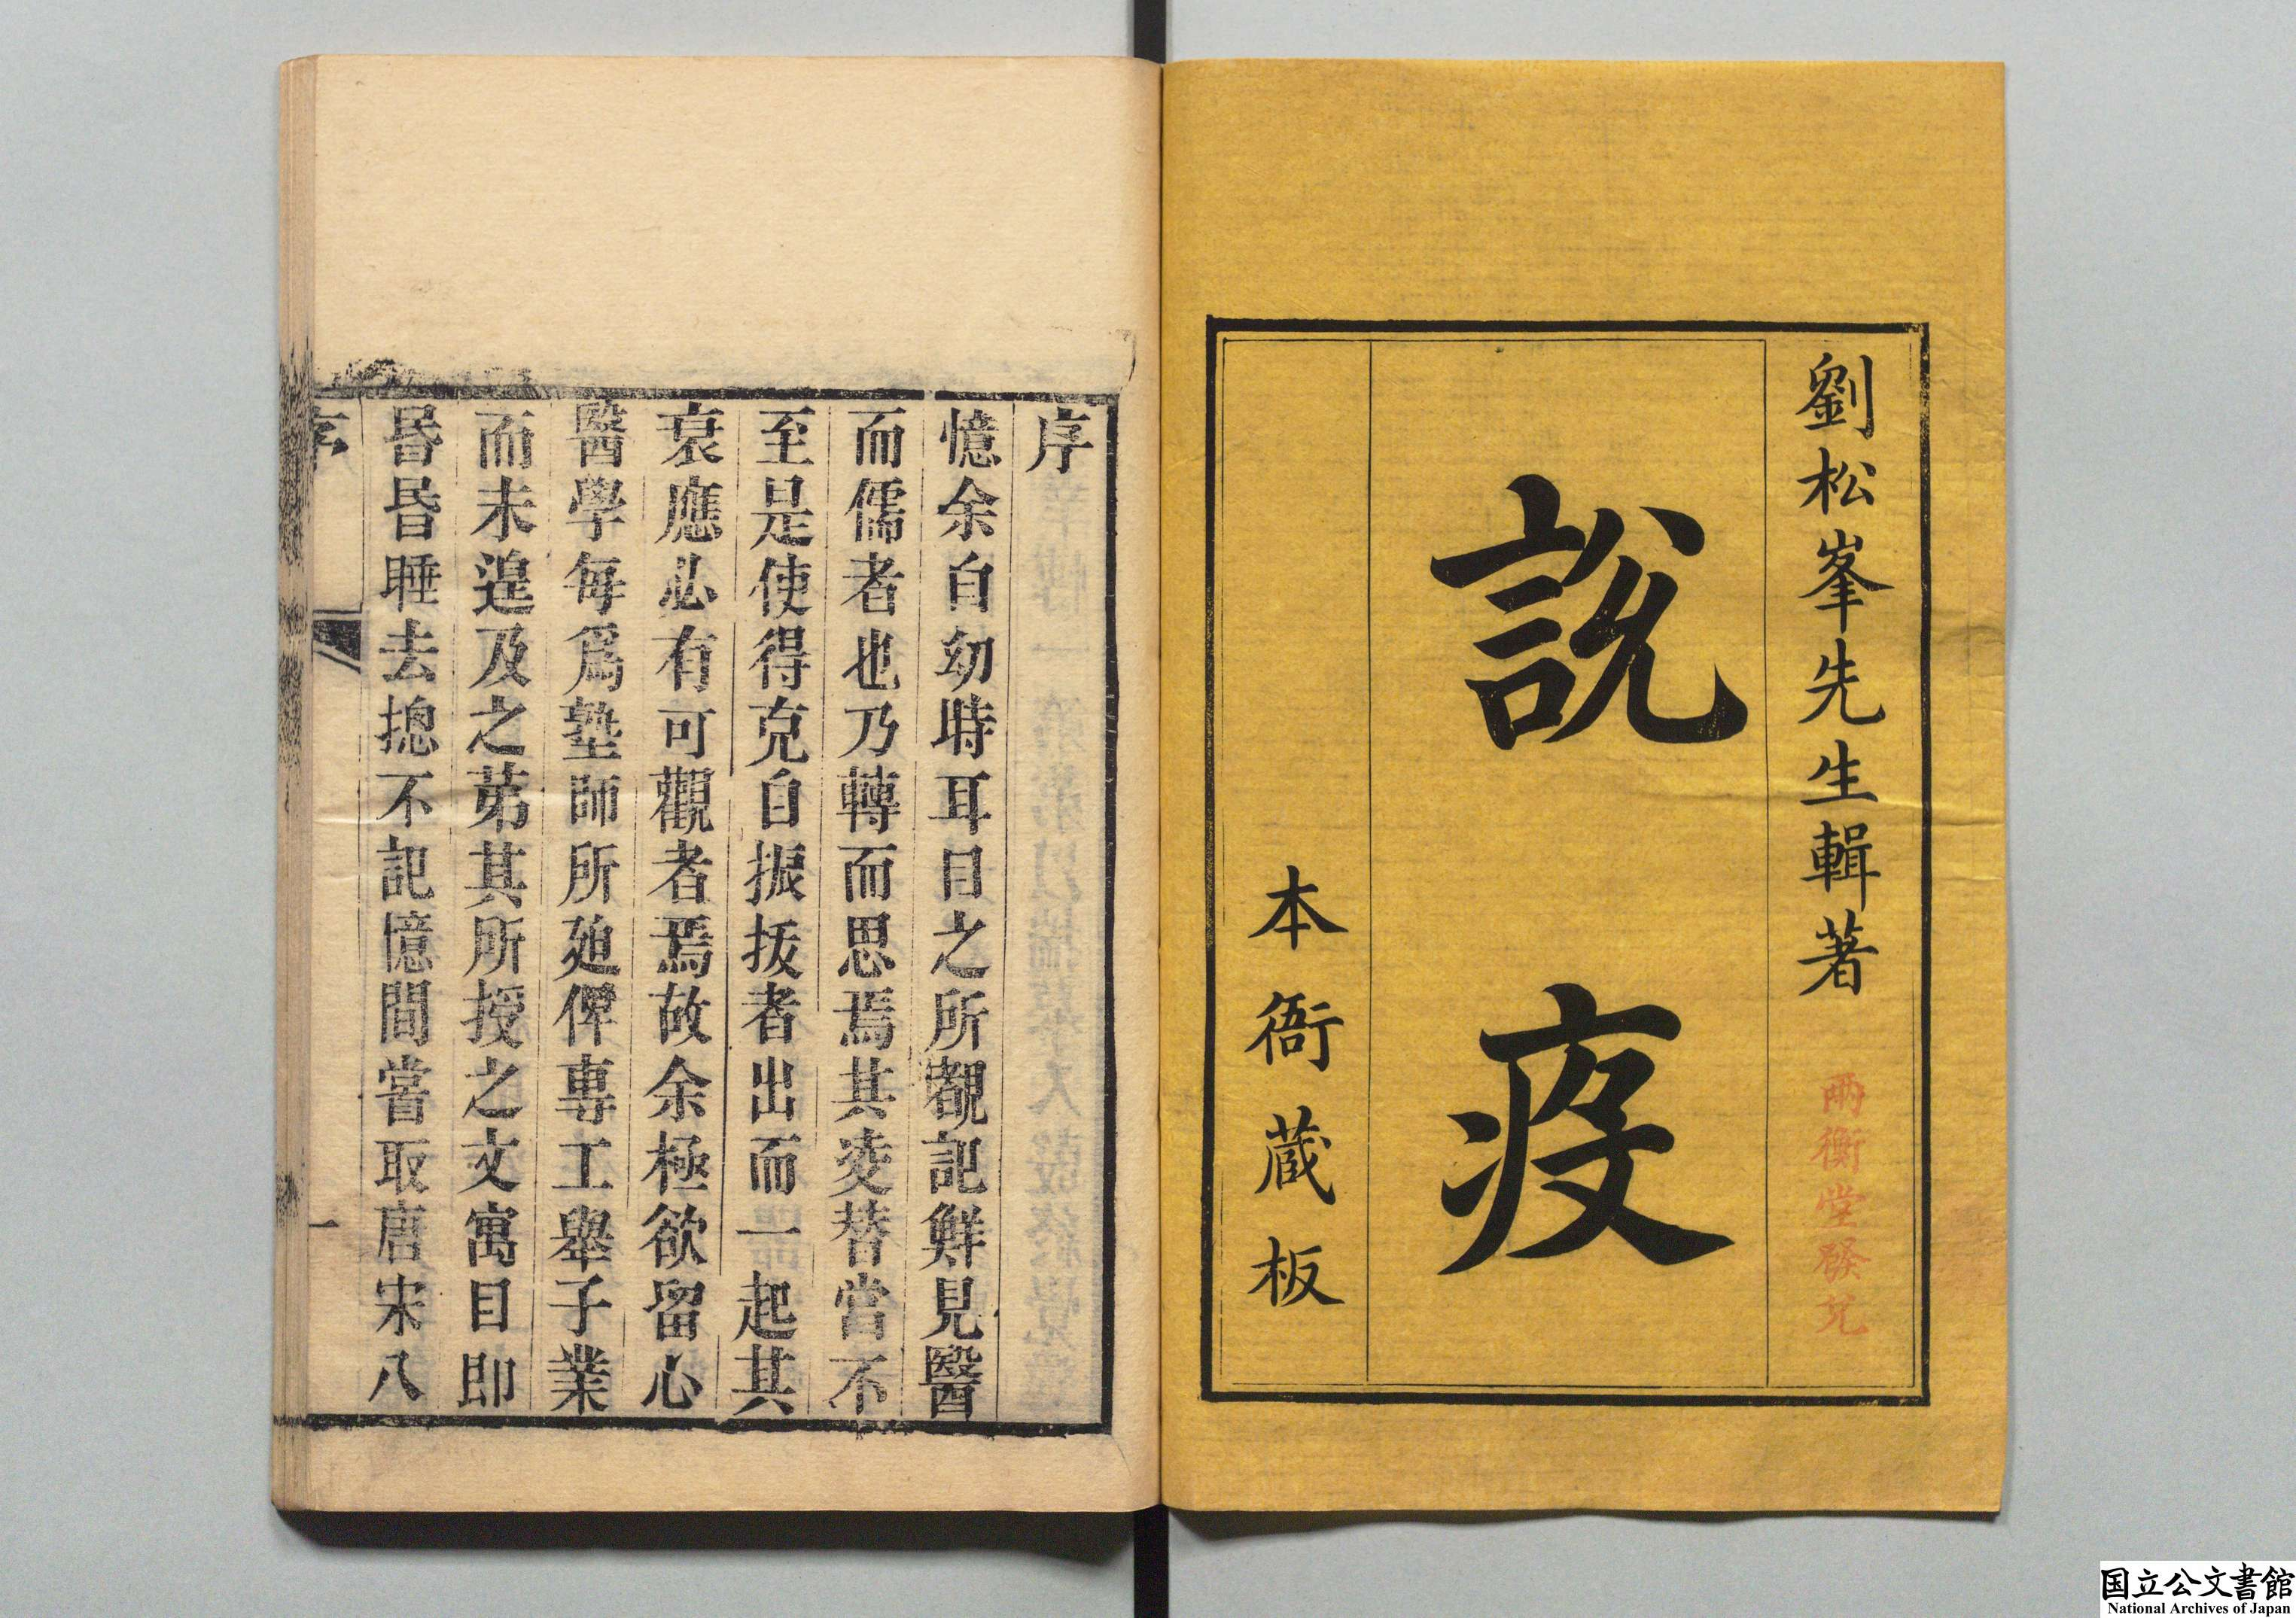 劉松峯先生輯著
兩衡堂發兌
說疫
本衙蔵板
序
憶余自幼時耳目之所覩記鮮見醫
而儒者也乃轉而思焉其凌替當不
至是使得克自振拔者出而一起其
衰應必有可觀者焉故余極欲留心
醫學每爲塾師所廹俾專工舉子業
而未遑及之苐其所授之文寓目即
昬昬睡去摠不記憶間嘗取唐宋八
序
一
国立公文書館
National Archives of Japan